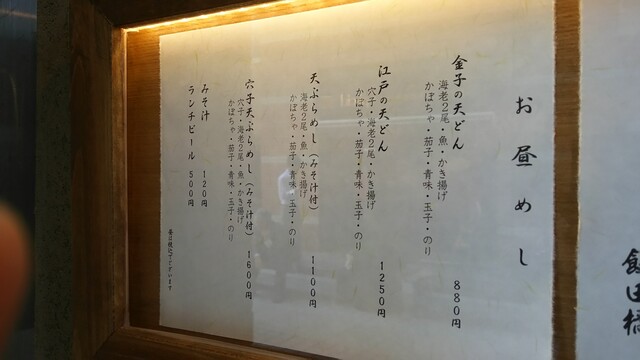 お昼めし
金子の天どん
海老2尾・魚・かき揚げ
かぼちゃ・茄子・青味・玉子・のり
880円
江戸の天どん
穴子・海老2尾・魚・かき揚げ
かぼちゃ・茄子・青味・玉子・のり
1250円
天ぷらめし(みそ汁付)
海老2尾・魚・かき揚げ
かぼちゃ・茄子・青味・玉子・のり
1100円
穴子天ぷらめし(みそ汁付)
穴子・海老2尾・魚・かき揚げ
かぼちゃ・茄子・青味・玉子・のり
1600円
みそ汁 120円
ランチビール 500円
毎日税込でございます
飯田橋